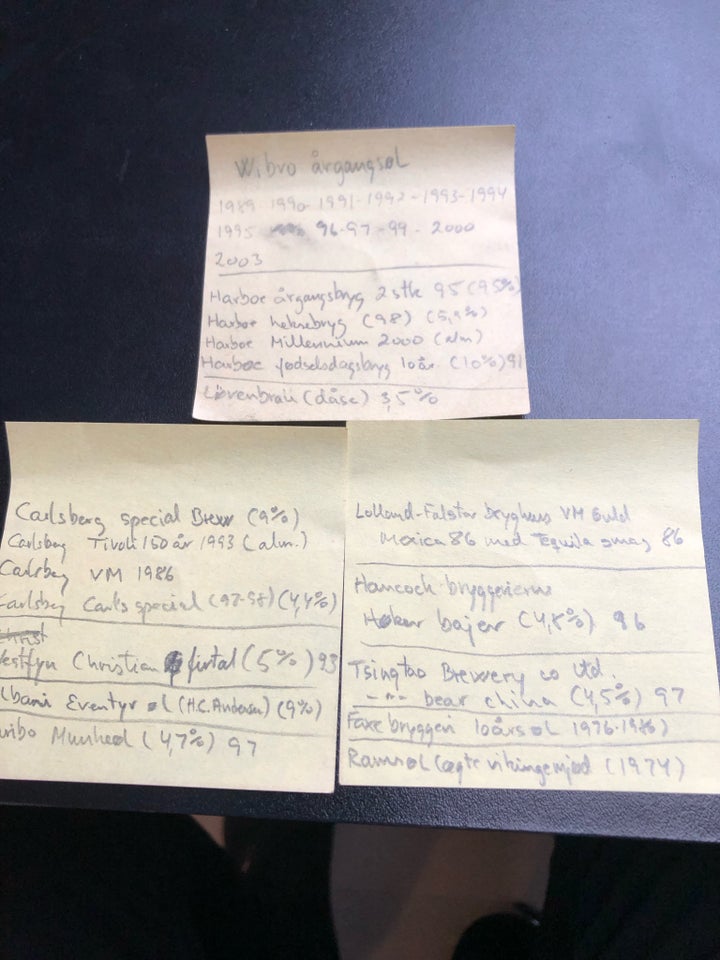 Wibro årgangsøl
1989 1990-1991-1992-1993-1994
1995 96-97-99-2000
2003
Harboe årgangsbryg 2 stk 95 (9,5%)
Harboe heksebryg (98) (5,9%)
Harboe Millennium 2000 (alm)
Harboe fødselsdagsbryg 10 år (10%) 91
Løvenbrau (dåse) 3,5%
Carlsberg special Brew (9%)
Carlsberg Tivoli 150 år 1993 (alm.)
Carlsberg VM 1986
Carlsberg Carls special (97-98) (4,4%)
Christ
Vestfyn Christian firtal (5%) 93
Albani Eventyr øl (H.C. Andersen) (9%)
Munked (4,7%) 97
Lolland-Falster bryghus VM Guld
Mexico 86 med Tequila smag 86
Hancock bryggerierne
Høker bajer (4,8%) 96
Tsingtao Brewery co Ltd.
-"- bear china (4,5%) 97
Faxe bryggeri 10årsøl 1976-1986)
Ramsøl (ægte vikingemjød (1974)